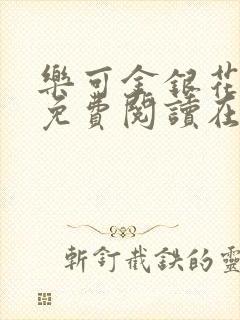 樂可金銀花
免費閱讀在
斬釘截鉄的靈